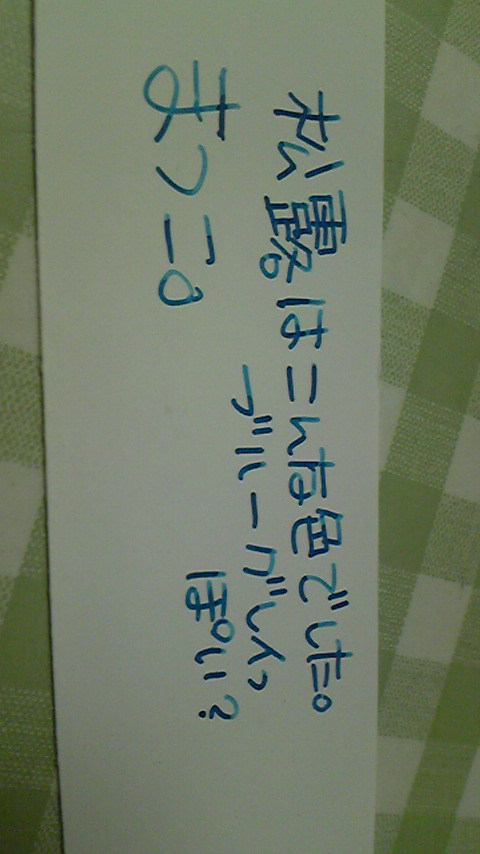 松露はこんな色でした。
ブルーグレイっ
ぽい？
まつこ。